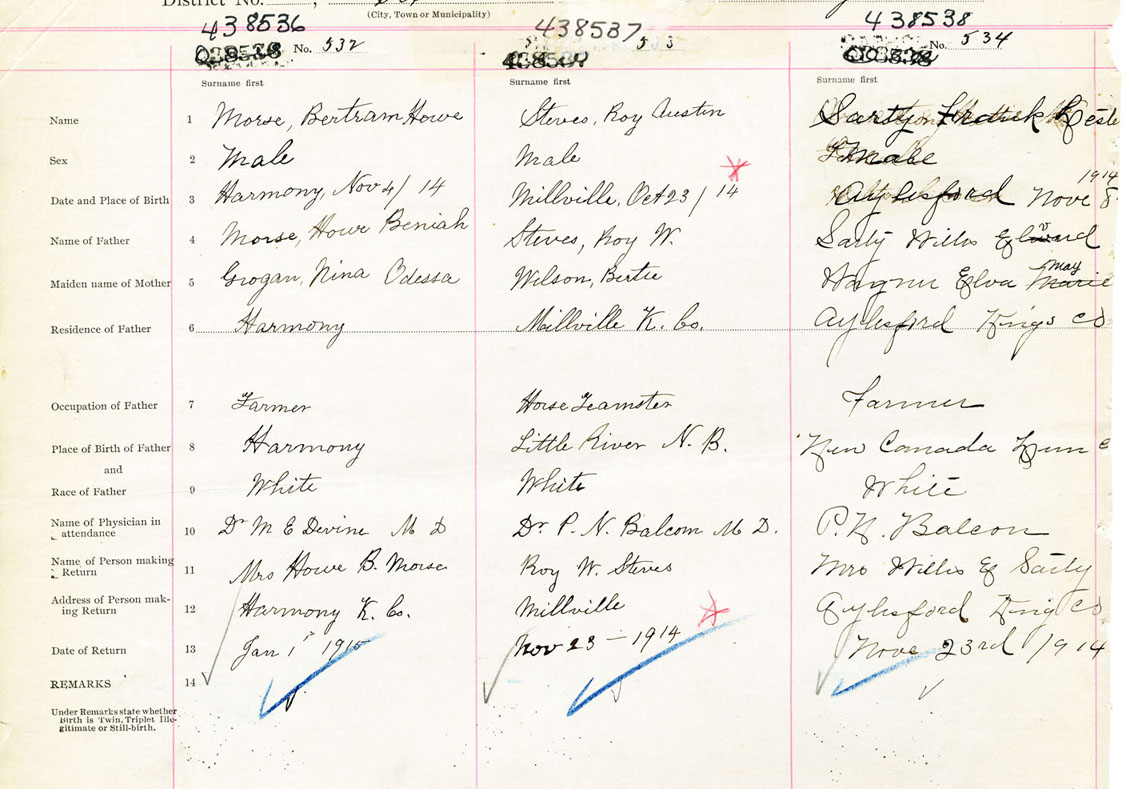 District No.
(City, Town or Municipality)
438536 438537 438538
No. 532 No. 534
Surname first Surname first Surname first
Name 1 Morse, Bertram Howe Steves, Roy Austin Sarty
Sex 2 Male Male Male
Date and Place of Birth 3 Harmony, Nov 4/14 Millville, Oct 23/14 Aylesford Nove 8 1914
Name of Father 4 Morse, Howe Beniah Steves, Roy W. Sarty Willis
Maiden name of Mother 5 Grogan, Nina Odessa Wilson, Bertie Elva May Marie
Residence of Father 6 Harmony Millville K. Co. Aylesford Kings Co
Occupation of Father 7 Farmer Horse Teamster Farmer
Place of Birth of Father 8 Harmony Little River N. B. New Canada
and
Race of Father 9 White White White
Name of Physician in
attendance 10 Dr M E Devine M D Dr. P. N. Balcom M D. P. N. Balcon
Name of Person making
Return 11 Mrs Howe B. Morse Roy W. Steves Mrs Willis E Sarty
Address of Person mak-
ing Return 12 Harmony K. Co. Millville Aylesford King Co
Date of Return 13 Jan 1st 1915 Nov 23 - 1914 Nove 23rd /1914
REMARKS 14
Under Remarks state whether
Birth is Twin, Triplet Ille-
gitimate or Still-birth.